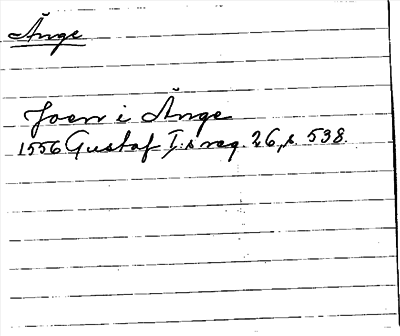 Ånge
Joen i Ånge
1556 Gustaf I:s reg. 26, s. 538.